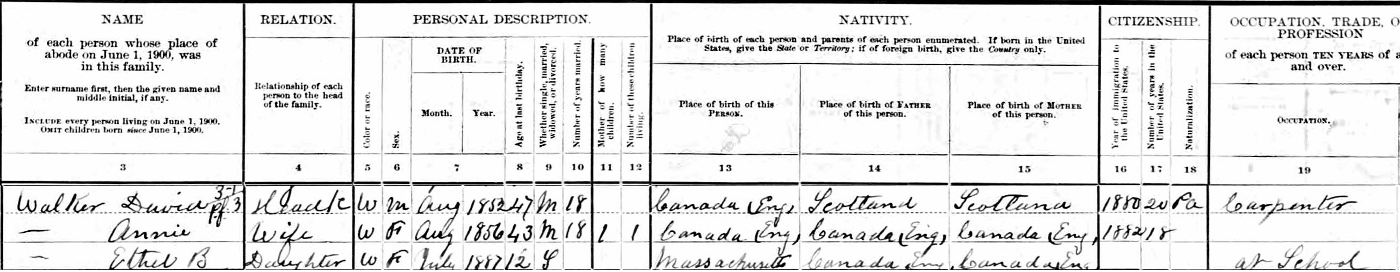 NAME RELATION. PERSONAL DESCRIPTION. NATIVITY. CITIZENSHIP. OCCUPATION, TRADE, O
PROFESSION
of each person whose place of
abode on June 1, 1900, was
in this family.
Enter surname first, then the given name and
middle initial, if any.
INCLUDE every person living on June 1, 1900.
OMIT children born since June 1, 1900.
Relationship of each
person to the head
of the family.
Color or race.
Sex.
DATE OF
BIRTH.
Month. Year.
Age at last birthday.
Whether single, married,
widowed, or divorced.
Number of years married.
Mother of how many
children.
Number of these children
living.
Place of birth of each person and parents of each person enumerated. If born in the United
States, give the State or Territory; if of foreign birth, give the Country only.
Place of birth of this
PERSON.
Place of birth of FATHER
of this person.
Place of birth of MOTHER
of this person.
Year of immigration to
the United States.
Number of years in the
United States.
Naturalization.
of each person TEN YEARS of a
and over.
OCCUPATION.
3 4 5 6 7 8 9 10 11 12 13 14 15 16 17 18 19
Walker David Head W M Aug 1852 47 M 18 Canada (Eng) Scotland Scotland 1880 20 Pa Carpenter
— Annie Wife W F Aug 1856 43 M 18 1 1 Canada (Eng) Canada (Eng) Canada (Eng) 1882 18
— Ethel B Daughter W F July 1887 12 S Massachusetts Canada Eng Canada Eng at School